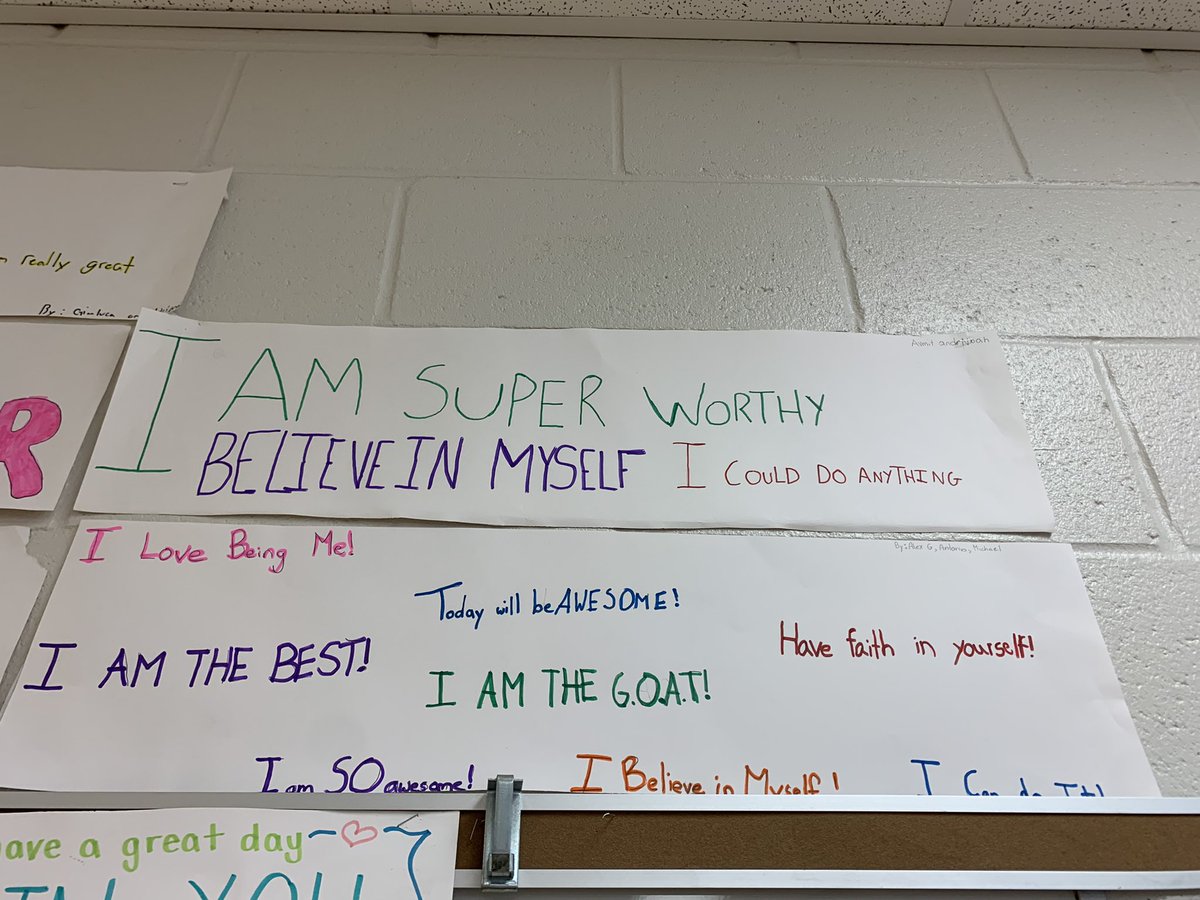 really great
By: Gianluca
R
I AM SUPER WORTHY
BELIEVE IN MYSELF I COULD DO ANYTHING
I Love Being Me!
By: Alex G, Antonio, Michael
Today will be AWESOME!
Have faith in yourself!
I AM THE BEST!
I AM THE G.O.A.T!
I am SO awesome!
I Believe in Myself!
I Can do It!
ave a great day
YOU